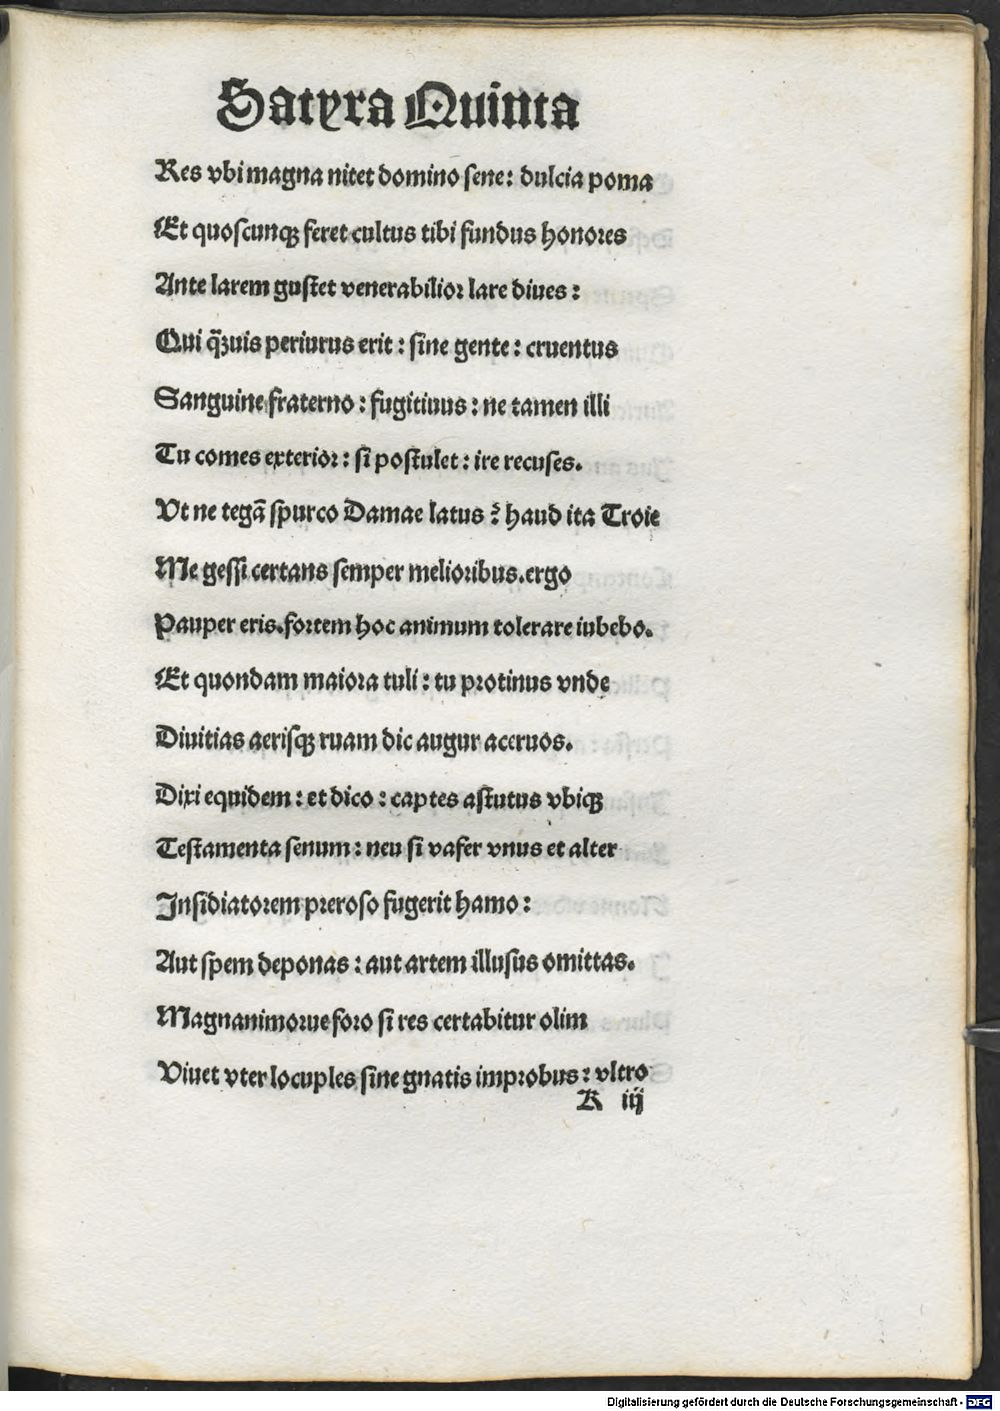 Satyra Quinta
Res vbi magna nitet domino sene: dulcia poma
Et quoscunqꝫ feret cultus tibi fundus honores
Ante larem gustet venerabilior lare diues:
Qui q̄ꝫuis periurus erit: sine gente: cruentus
Sanguine fraterno: fugitiuus: ne tamen illi
Tu comes exterior: si postulet: ire recuses.
Vt ne tegā spurco Damae latus? haud ita Troie
Me gessi certans semper melioribus. ergo
Pauper eris. fortem hoc animum tolerare iubebo.
Et quondam maiora tuli: tu protinus vnde
Diuitias aerisqꝫ ruam dic augur aceruos.
Dixi equidem: et dico: captes astutus vbiqꝫ
Testamenta senum: neu si vafer vnus et alter
Insidiatorem preroso fugerit hamo:
Aut spem deponas: aut artem illusus omittas.
Magnanimorue foro si res certabitur olim
Viuet vter locuples sine gnatis improbus: vltro
K iij
Digitalisierung gefördert durch die Deutsche Forschungsgemeinschaft - DFG